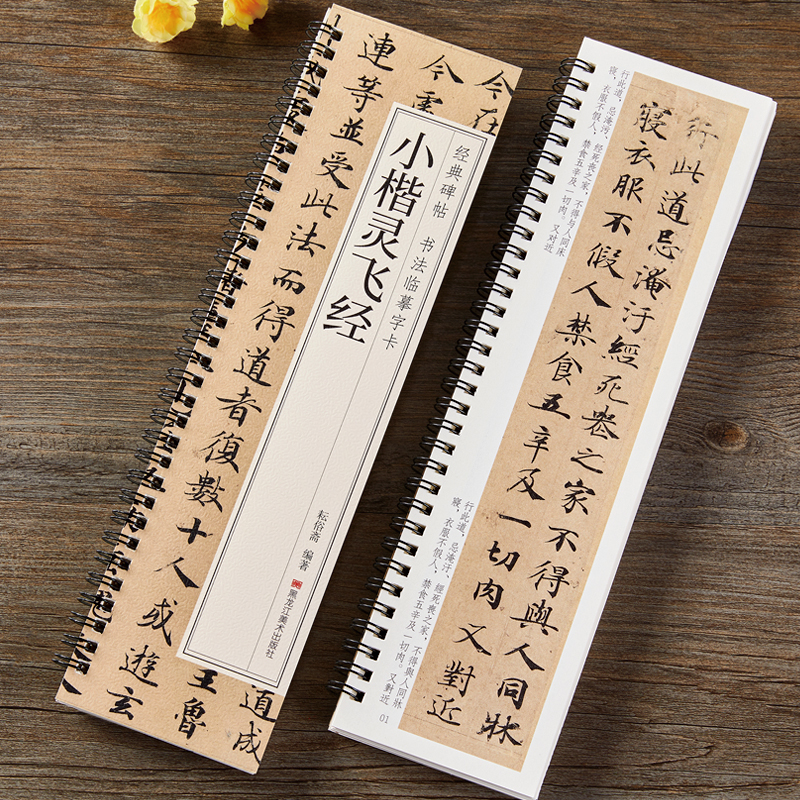 经典碑帖 书法临摹字卡
小楷灵飞经
耘俗斋 编著
黑龙江美术出版社
今在
道成
今
王魯
連等並受此法而得道者復數十人或遊玄
行此道，忌淹污、经死丧之家，不得与人同床
寝，衣服不假人，禁食五辛及一切肉。又对近
行此道忌淹汙經死喪之家不得與人同牀
寢衣服不假人禁食五辛及一切肉又對近
行此道，忌淹汙、經死喪之家，不得與人同牀
寢，衣服不假人，禁食五辛及一切肉。又對近
01